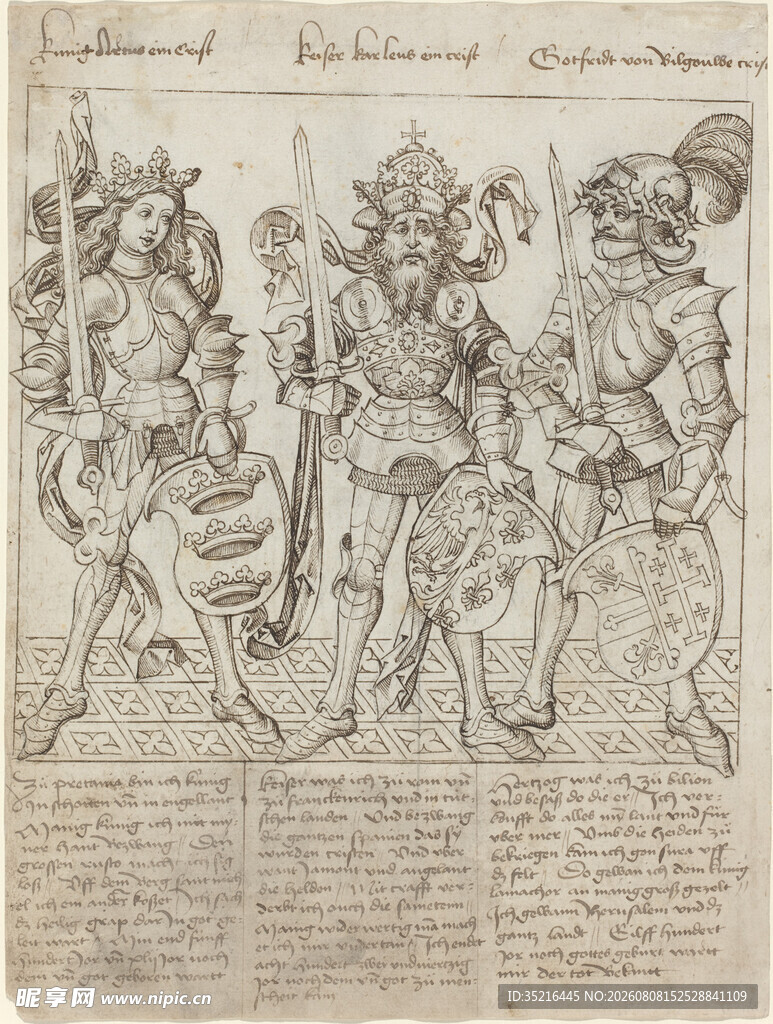 Künig Artus ein Crist
Keiser karleus ein crist
Gotfridt von Bilgouwe crist
Zu Pretania bin ich künig
In schotten vn̄ in engellant
Manig künig ich mitt my-
ner hant Bezwang Den
grossen ruso macht ich sig
loß Vff dem berg sant mich
el ich ein ander kosset Ich sach
dz heilig grap dar In got ge-
leit wart Min end fünff
hundert Jor vn̄ xlij Jor noch
dem vn̄ got geboren wartt
Keiser was ich zü rom vn̄
zü franckenrich und in tüt-
schen landen Und bezwang
die gantzen spanien das sy
wurden cristen Und uber
want Jamont und angelant
die helden Mit crafft ver-
derbt ich ouch die sametenn
Manig wider wertig man mach
et ich mir undertan Ich endet
acht hundert zwei und viertzig
jor noch dem vn̄ got zu men-
scheit kam
Hertzog was ich zü bilion
und besaß do die er Ich ver-
kaufft do alles min lant und für
vber mer Umb die heiden zü
bekriegen kam ich gon sura vff
dz felt Do gewan ich dem künig
lamachor an manig groß gezelt
Ich gewann Iherusalem und dz
gantz landt Eilff hundert
jor noch gottes geburt wartt
mir der tot bekant
昵享网 www.nipic.cn
ID:35216445 NO:20260808152528841109